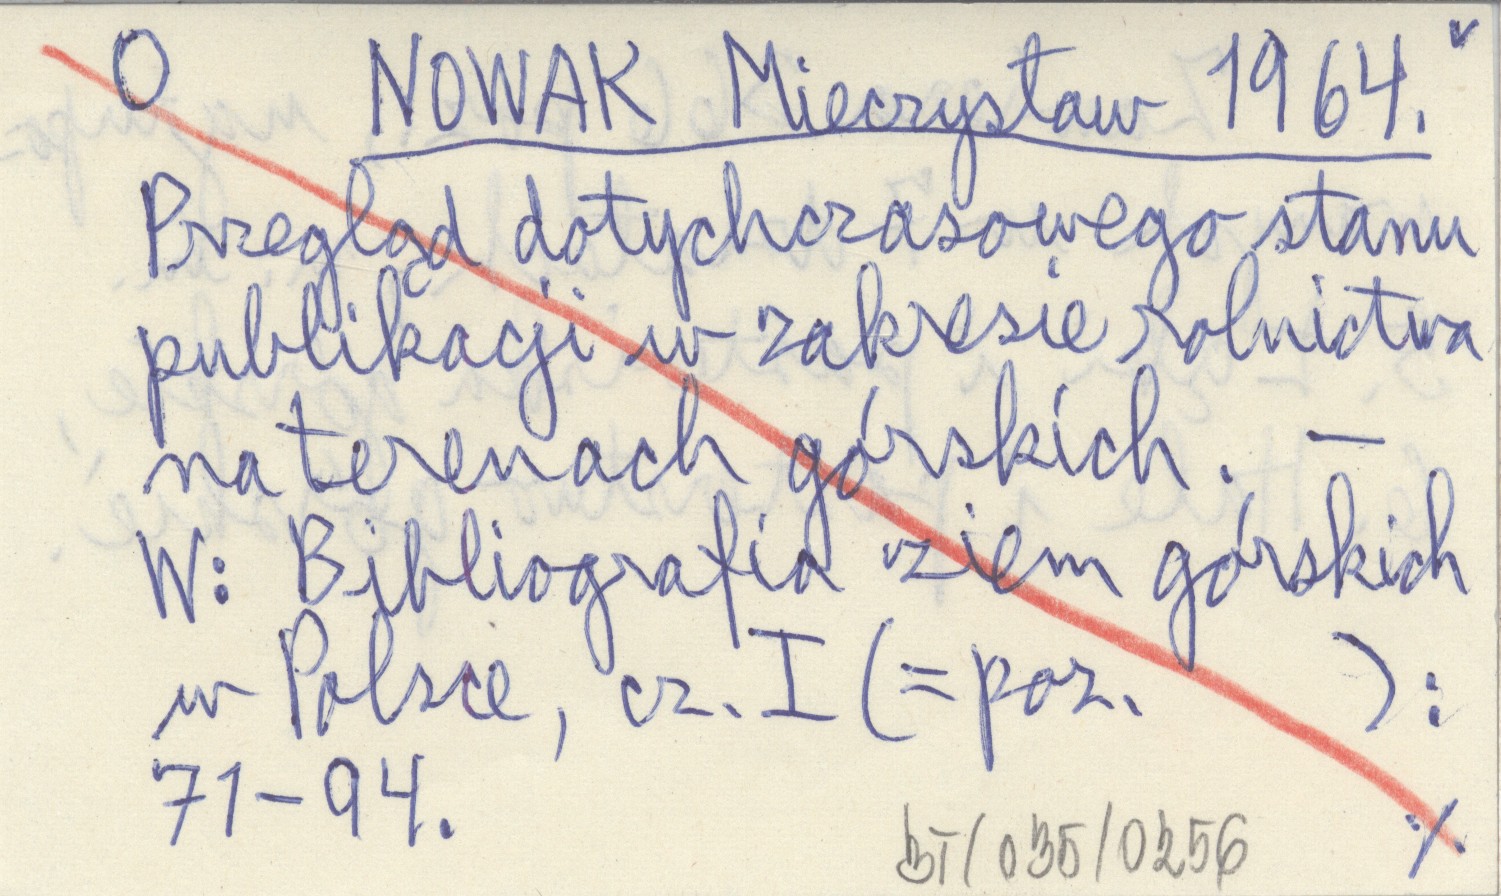 O NOWAK Mieczysław 1964. v
Przegląd dotychczasowego stanu
publikacji w zakresie rolnictwa
na terenach górskich. —
W: Bibliografia ziem górskich
w Polsce, cz. I (=poz. ):
71-94.
BT/035/0256 ·/.